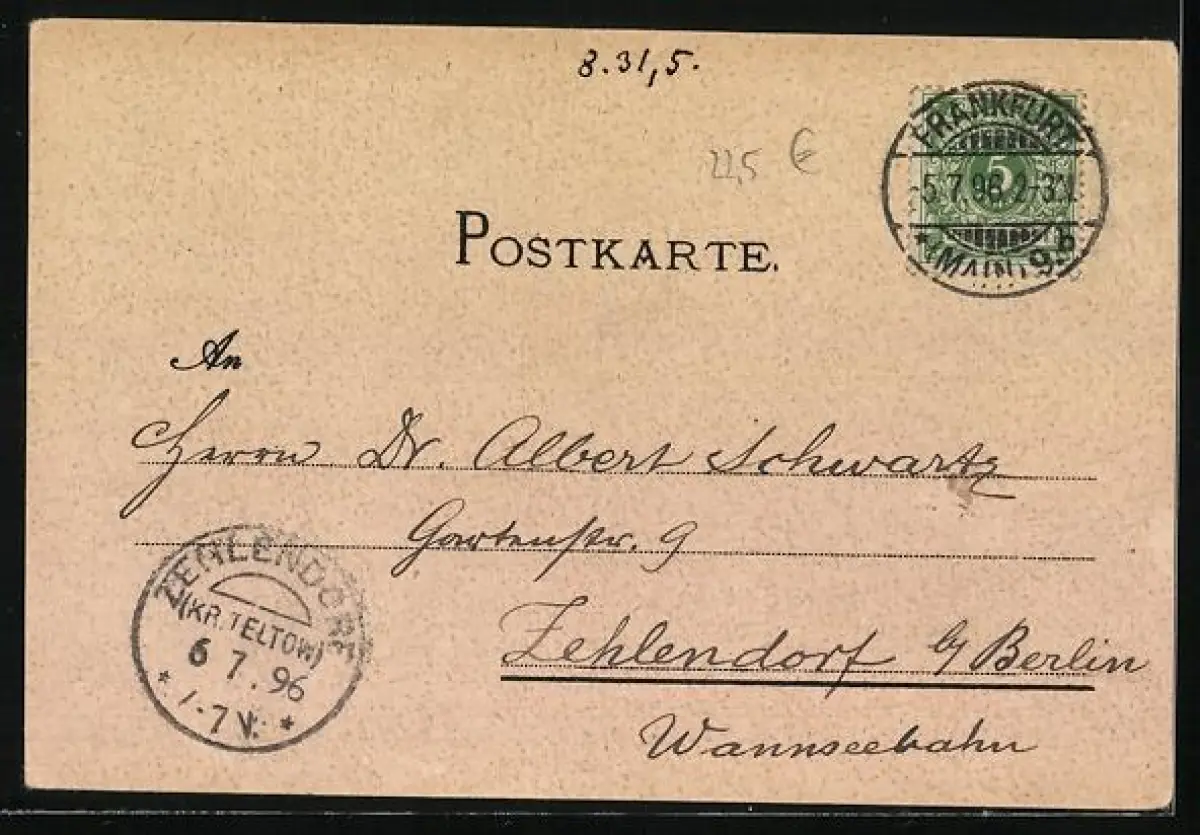 8.31,5.
22,5 €
FRANKFURT
5
5.7.96.2-3N.
* (MAIN) 9.b
POSTKARTE.
An
Herrn Dr. Albert Schwartz
Gartenstr. 9
ZEHLENDORF
(KR. TELTOW)
6 7. 96
* 7V. *
Zehlendorf b/ Berlin
Wannseebahn